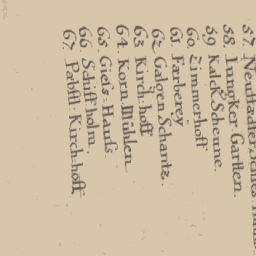 57. Neustädter
58. Iungker Gartten.
59. Kalck Scheune.
60. Zimmerhoff
61. Færberey
62. Galgen Schantz.
63. Kirch-hoff
64. Korn Mühlen
65. Giels-Hauss
66. Schiff holm.
67. Pæbstl. Kirch-hoff,